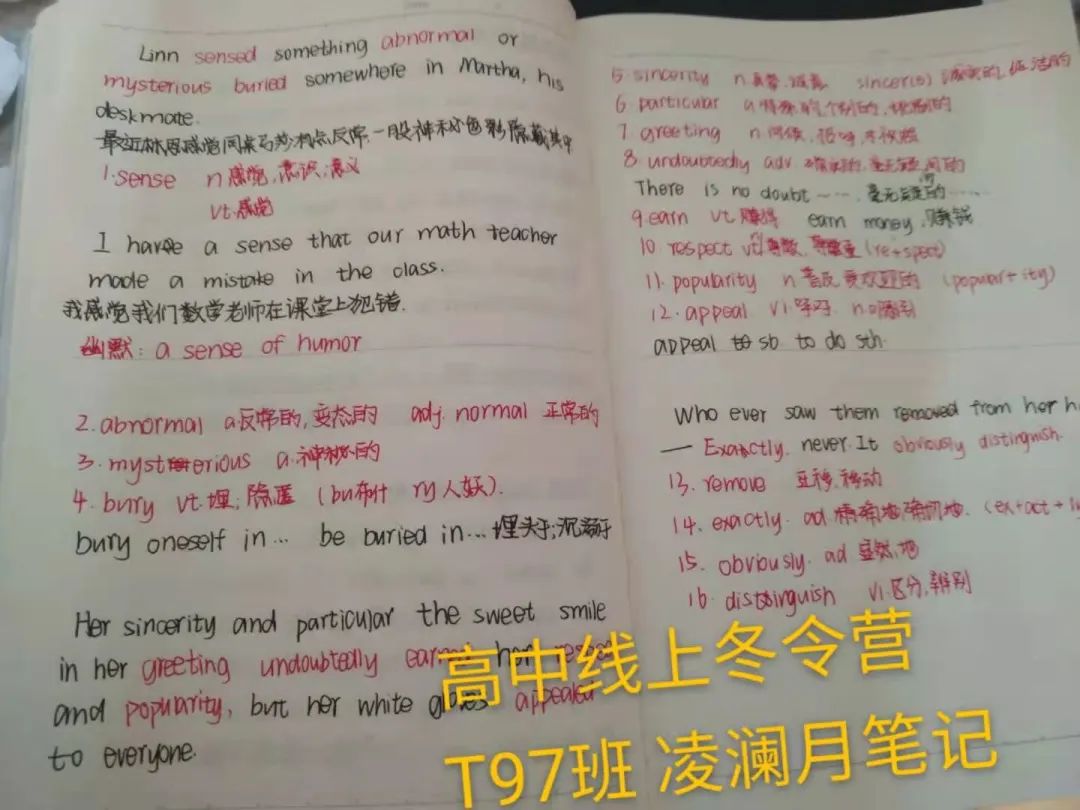 Linn sensed something abnormal or
mysterious buried somewhere in Martha, his
deskmate.
最近林恩感觉同桌玛莎有点反常,一股神秘色彩隐藏其中
1.sense n感觉,意识,意义
vt.感觉
I have a sense that our math teacher
made a mistake in the class.
我感觉我们数学老师在课堂上犯错.
幽默: a sense of humor
2.abnormal a.反常的,变态的 adj. normal 正常的
3. mysterious a.神秘的
4. bury vt.埋,隐匿 (bu布什 ry人妖).
bury oneself in... be buried in...埋头于,沉溺于
Her sincerity and particular the sweet smile
in her greeting undoubtedly earned her respe
and popularity, but her white gloves appealed
to everyone.
5.sincerity n真挚,诚意 sincer(e) 诚实的
6.particular a特殊的,个别的
7.greeting n问候
8. undoubtedly adv 确实的,毫无疑问的
There is no doubt ...... 毫无疑问的......
9.earn vt.赚得 earn money.赚钱
10. respect vt (re+spect)
11. popularity n 受欢迎的 (popular+ity)
12. appeal vi呼吁. n
appeal to sb to do sth.
Who ever saw them removed from her h
— Exactly, never. It obviously distinguish.
13. remove 移动
14. exactly. ad 精确地,确切地. (ex+act+l
15. obviously. ad 显然,地
16. distinguish vi.区分,辨别
高中线上冬令营
T97班 凌澜月笔记